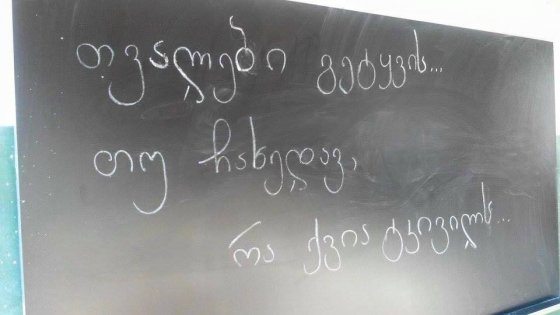 თვალები გეტყვის...
თუ ჩახედავ,
რა ქვია ტკივილს...